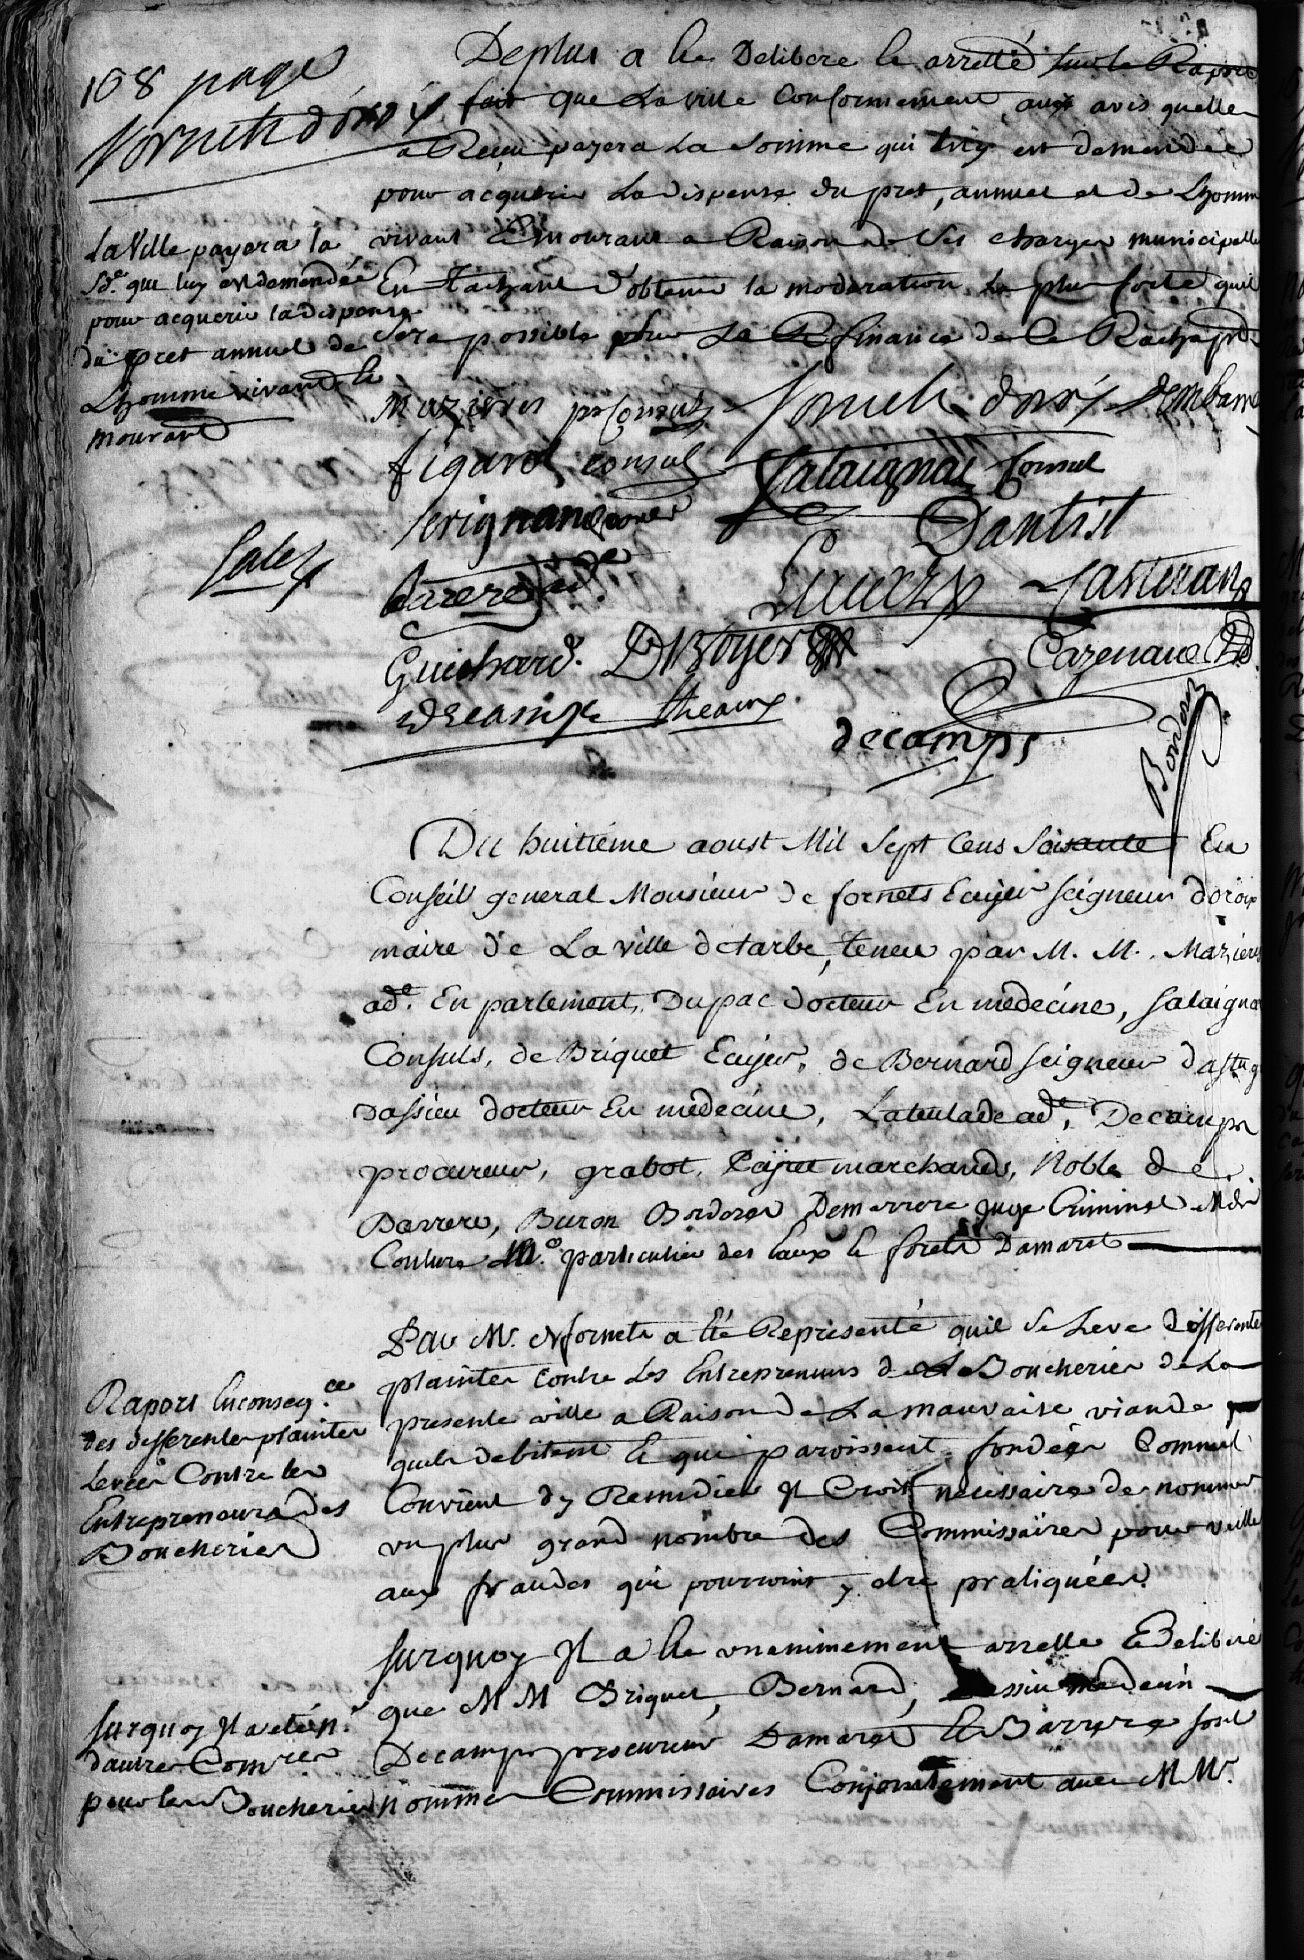 108 page
fornets doroix
Deplus a été Delibere et arretté sur le Raport
fait que La ville Conformement aux avis quelle
a Reçu payera La somme qui luy est demandée
pour acquerir La dispense du pret, annuel et de Lhomme
vivant et mourant a Raison de ses charges municipalles
En tachant d'obtenir la moderation la plus forte quil
sera possible pour La finance de Ce Rachapt
La Ville payera la
s.e que luy est demandée
pour acquerir la dispense
du pret annuel de
Lhomme vivant et
mourant
Mazieres pr Consul fornets doroix Dembarrere
figarol consul Salaignac Consul
Serignan Dantist
Salles
Barrere ad.e Lucarz Castéran
Guichard. Boyer Cazenave
decamps
Bordores
Du huitiéme aoust Mil Sept Cens Soisante En
Conseil general Monsieur de fornets Ecuyer seigneur doroix
maire de La ville de tarbe, teneu par M. M. Mazieres
ad.e En parlement, Dupac docteur En medecine, Salaignac
Consuls, de Briquet Ecuyer, de Bernard seigneur dastug
dassieu docteur En médecine, Lateulade ad.e, Decamps
procureur, grabot, marchands, Noble de
Barrere, Buron Bordores Demarrere juge Criminel
Couture M.e particulier des Eaux et forets Damaret
Par M. de fornets a été Representé quil se Leve differentes
plaintes contre Les Entrepreneurs de La Boucheries de La
presente ville a Raison de La mauvaise viande
quils debitent et qui paroissent fondées Comme il
Convient dy Remedier Il Croit necessaire de nommer
un plus grand nombre des Commissaires pour veiller
aux fraudes qui pourroint y etre pratiquées.
Raport Enconseq.ce
des differentes plaintes
Levées Contre les
Entrepreneurs des
Boucheries
surquoy Il a été unenimement arretté et Deliberé
que M M Briquet, Bernard, dassieu medecin
Decamps procureur Damaret et Barrere sont
nommés Commissaires Conjointement avec M Mrs.
surquoy Il a eté n.é
dautres Comres
pour les Boucheries